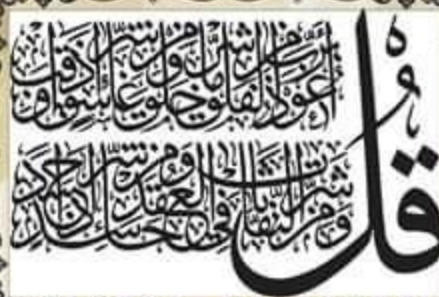 قُلْ
أعوذ برب الفلق من شر ما خلق ومن شر غاسق إذا وقب
ومن شر النفاثات في العقد ومن شر حاسد إذا حسد